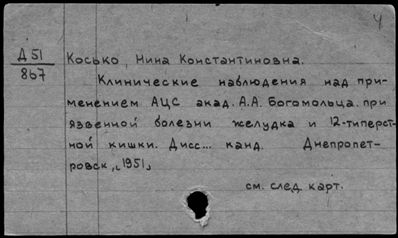 Ч
Д 51
867
Косько, Нина Константиновна.
Клинические наблюдения над при-
менением АЦС акад. А.А. Богомольца при
язвенной болезни желудка и 12-типерст-
ной кишки. Дисс... канд. Днепропет-
ровск, 1951,
см. след. карт.